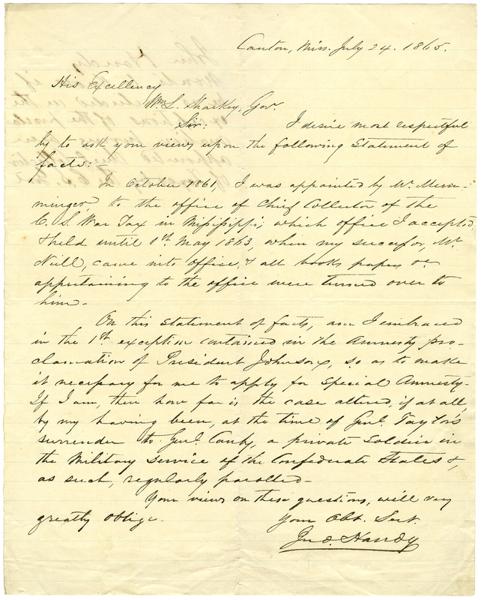 Canton, Miss. July 24. 1865.
His Excellency
Wm. L. Sharkey, Govr.
Sir: I desire most respectful
ly to ask your views upon the following statement of
facts:—
In October 1861, I was appointed by Mr. Mem-
minger, to the office of Chief Collector of the
C. S. War Tax in Mississippi; which office I accepted
& held until 1st May 1863, when my successor, Mr.
Neill, came into office, & all books papers &c
appertaining to the office were turned over to
him.—
On this statement of facts, am I embraced
in the 1st exception contained in the Amnesty pro-
clamation of President Johnson, so as to make
it necessary for me to apply for Special Amnesty.
If I am, then how far is the case altered, if at all,
by my having been, at the time of Genl. Taylor's
surrender to Genl. Canby, a private soldier in
the Military Service of the Confederate States &,
as such, regularly parolled—
Your views on these questions, will very
greatly oblige.
Your Obt. Servt.
Jno. Handy